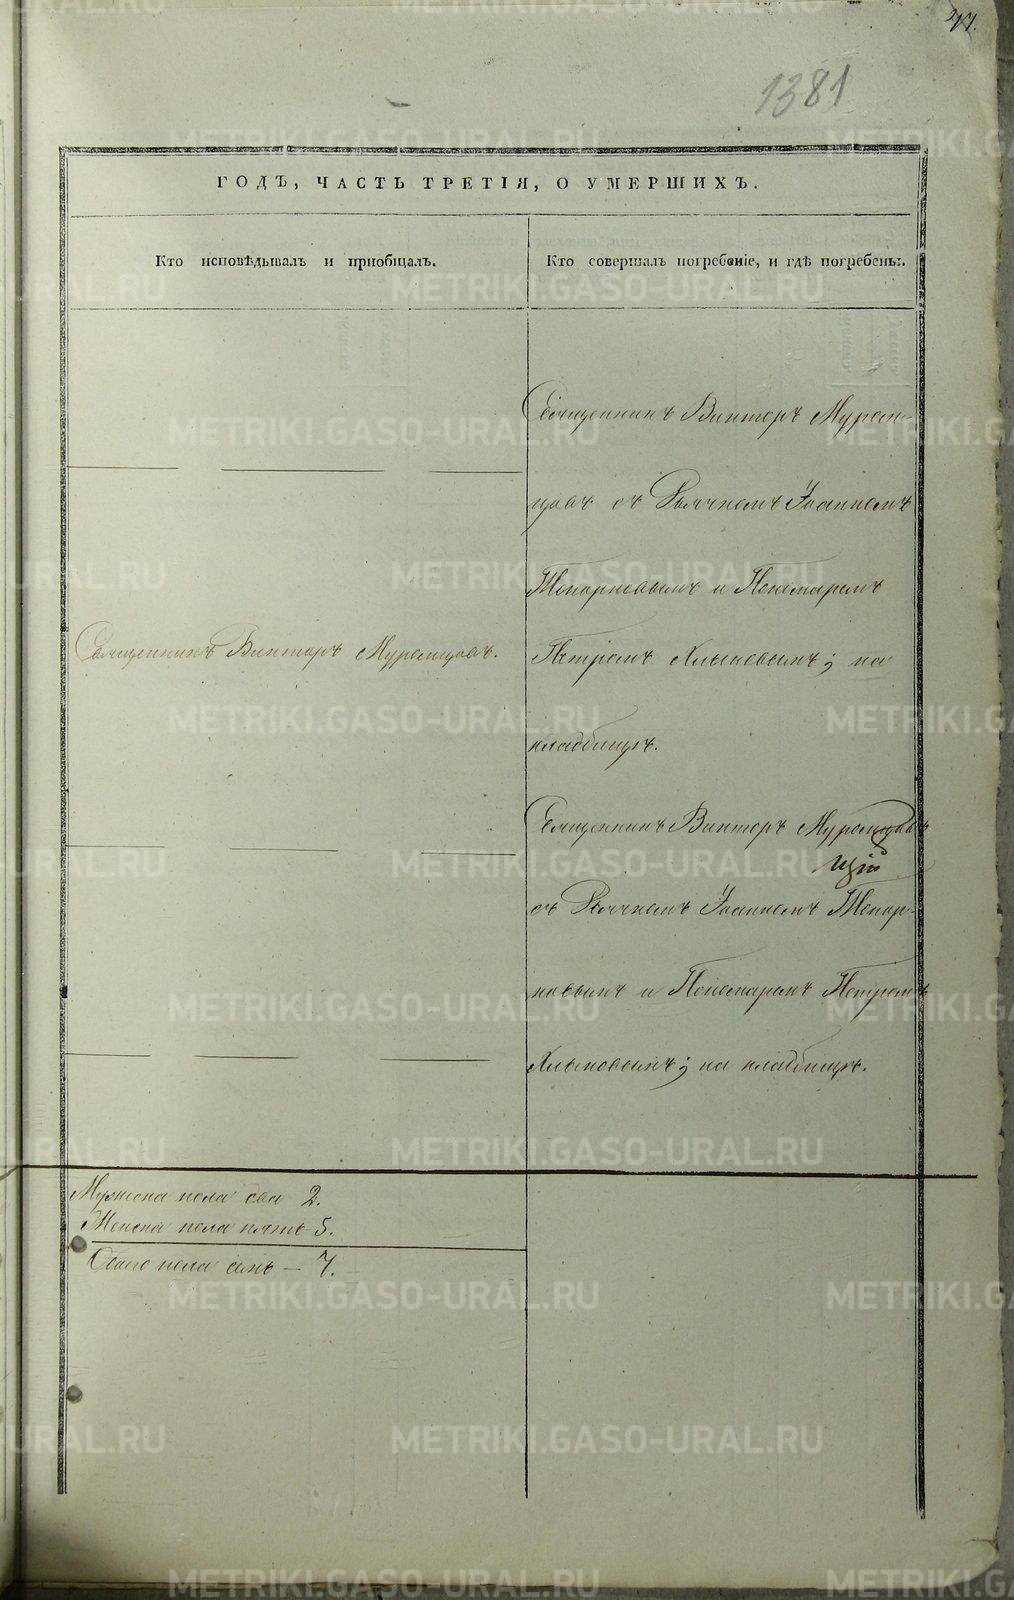 47.
1381
ГОДЪ, ЧАСТЬ ТРЕТІЯ, О УМЕРШИХЪ.
Кто исповѣдывалъ и пріобщалъ.
Кто совершалъ погребеніе, и гдѣ погребены.
Священникъ Викторъ Муромцовъ.
Священникъ Викторъ Муром-
цовъ съ Дьячкомъ Іоанномъ
Топорковымъ и Пономаремъ
Петромъ Хлыновымъ; на
кладбищѣ.
Священникъ Викторъ Муромцовъ
съ Дьячкомъ Іоанномъ Топор-
ковымъ и Пономаремъ Петромъ
Хлыновымъ; на кладбищѣ.
Мужеска пола два 2.
Женска пола пять 5.
Обоего пола семь — 7.
METRIKI.GASO-URAL.RU